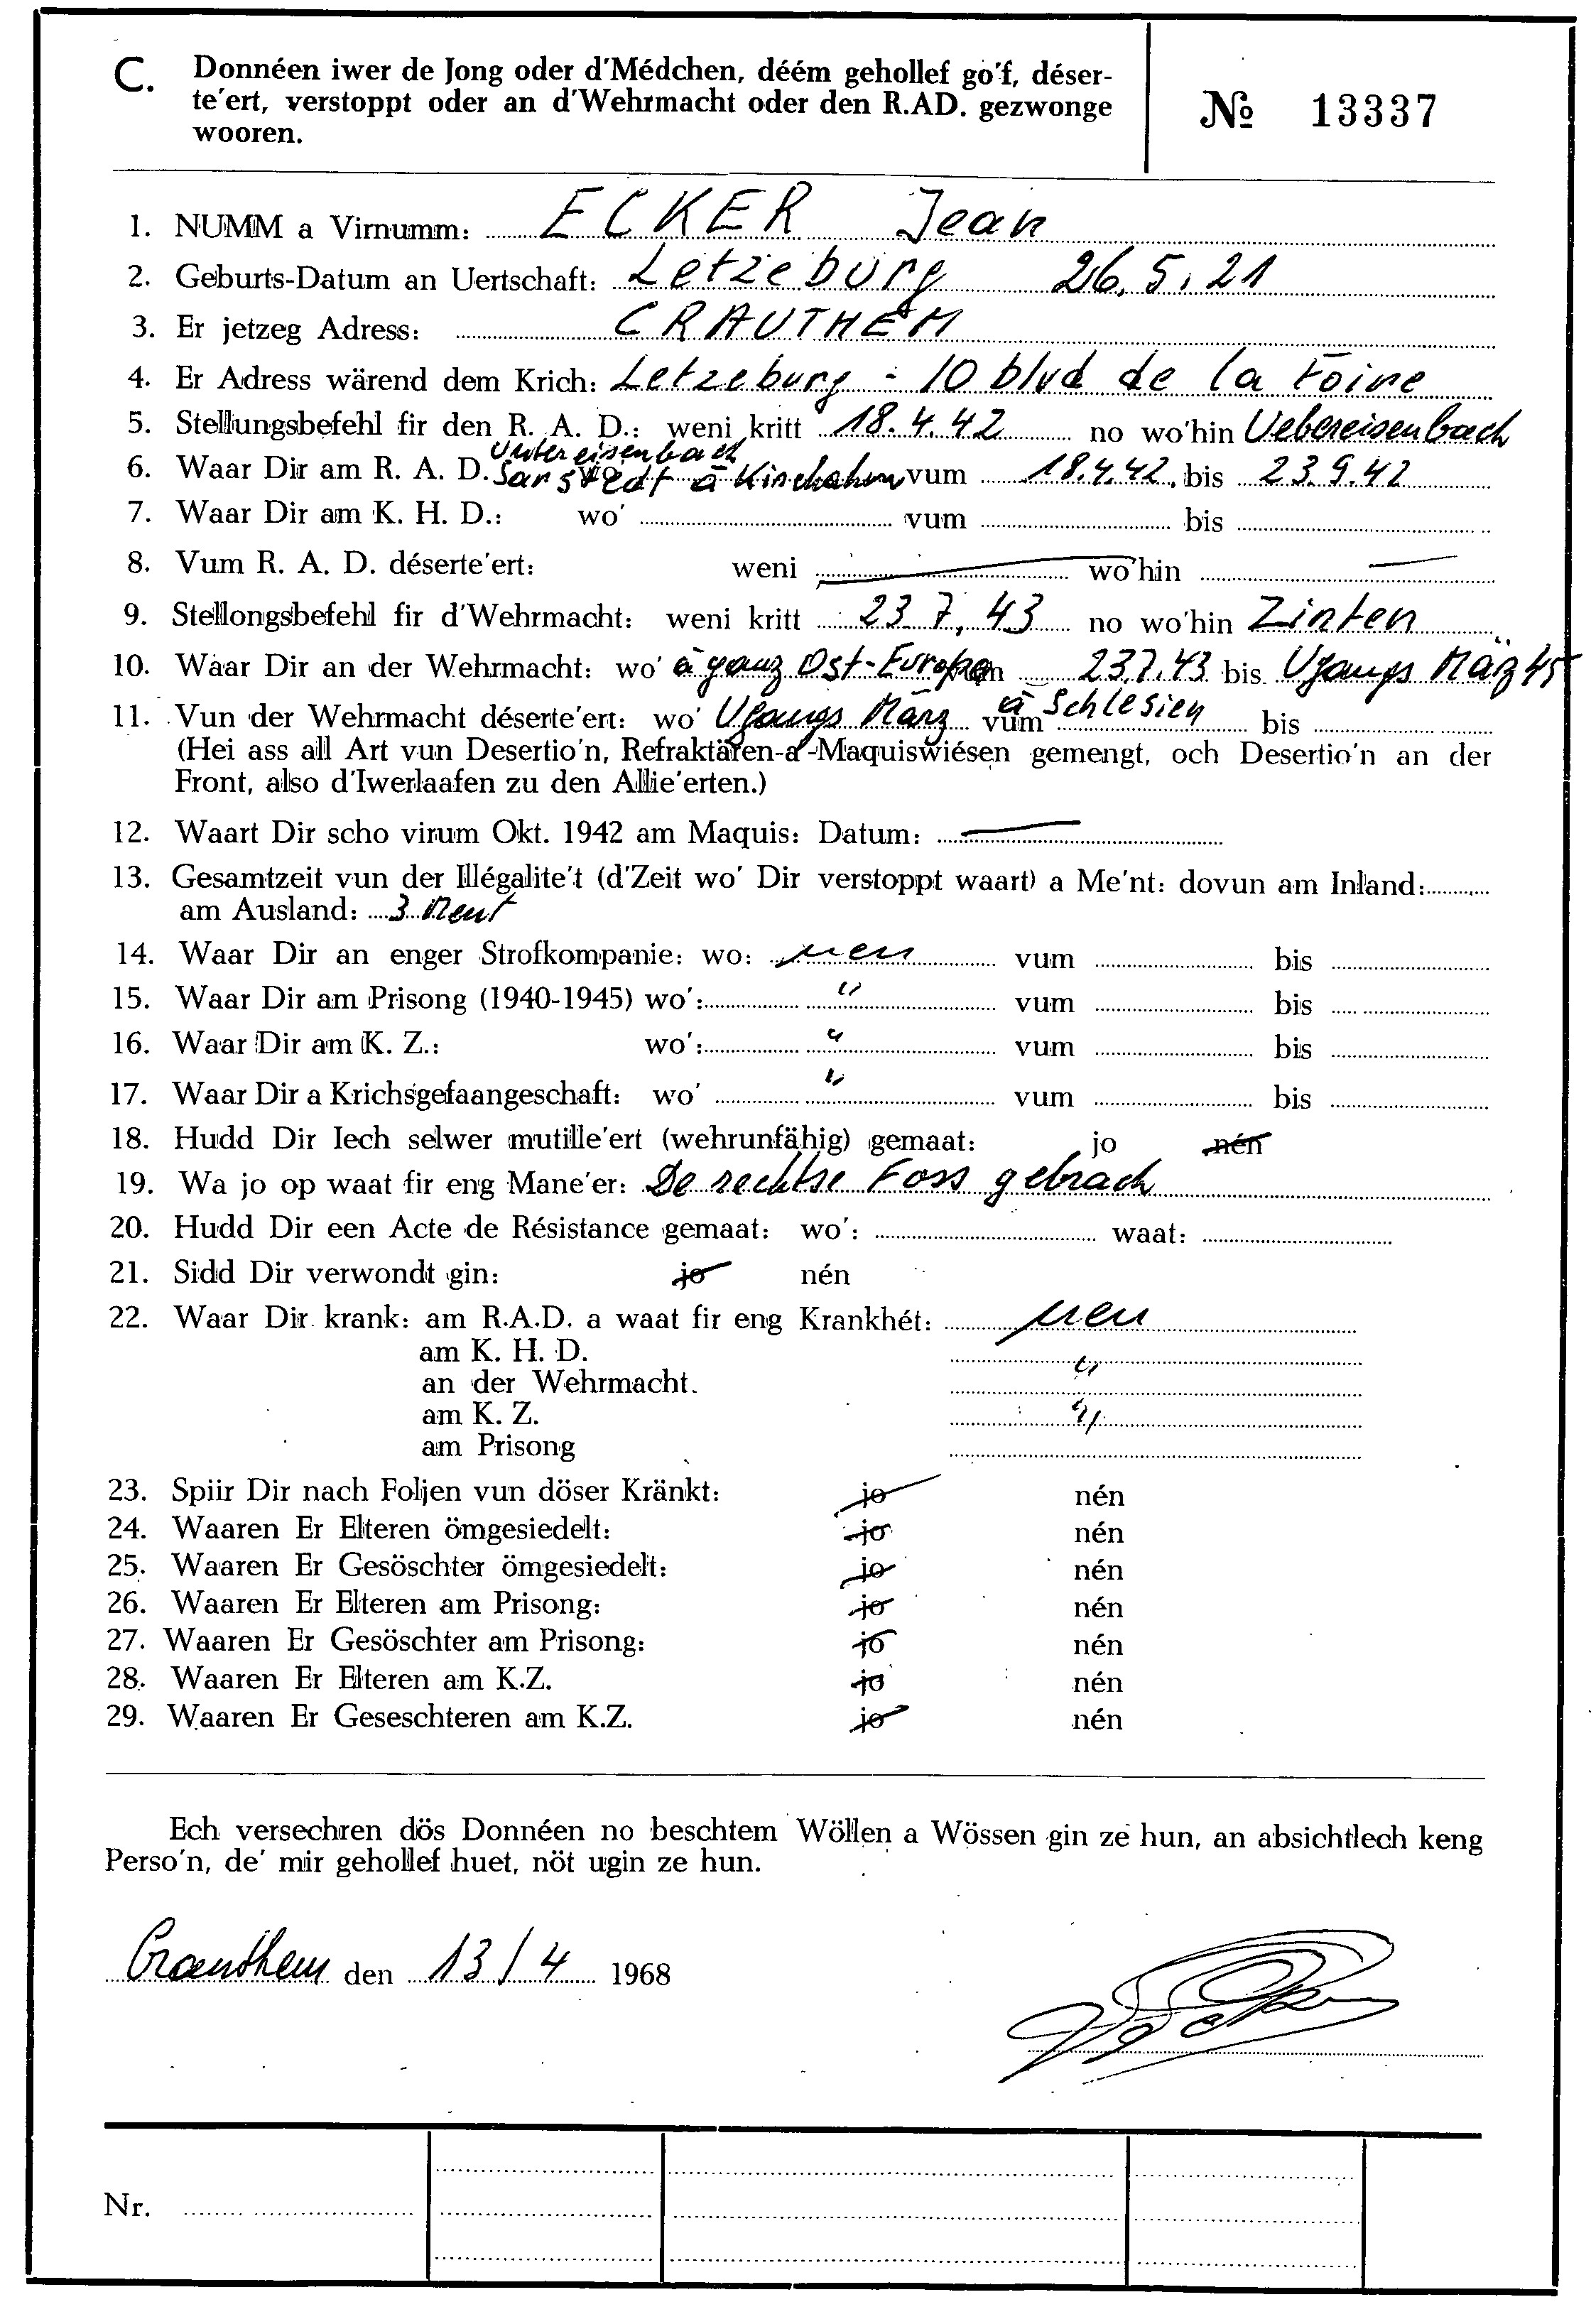 C. Donnéen iwer de Jong oder d'Médchen, déém gehollef go'f, déser-
te'ert, verstoppt oder an d'Wehrmacht oder den R.AD. gezwonge
wooren.
№ 13337
1. NUMM a Virnumm: ECKER Jean
2. Geburts-Datum an Uertschaft: Letzeburg 26.5.21
3. Er jetzeg Adress: CRAUTHEM
4. Er Adress wärend dem Krich: Letzeburg - 10 blvd de la Foire
5. Stellungsbefehl fir den R. A. D.: weni kritt 18.4.42 no wo'hin Uebereisenbach
Untereisenbach
6. Waar Dir am R. A. D. wo Sarstedt à vum 18.4.42. bis 23.9.42
7. Waar Dir am K. H. D.: wo' vum bis
8. Vum R. A. D. déserte'ert: weni — wo'hin —
9. Stellongsbefehl fir d'Wehrmacht: weni kritt 23.7.43 no wo'hin Zinten
10. Waar Dir an der Wehrmacht: wo' à ganz Ost-Europa vum 23.7.43 bis Ufangs März 45
11. Vun der Wehrmacht déserte'ert: wo' Ufangs März vum à Schlesien bis
(Hei ass all Art vun Desertio'n, Refraktären-a-Maquiswiésen gemengt, och Desertio'n an der
Front, also d'Iwerlaafen zu den Allie'erten.)
12. Waart Dir scho virum Okt. 1942 am Maquis: Datum: —
13. Gesamtzeit vun der Illégalite't (d'Zeit wo' Dir verstoppt waart) a Me'nt: dovun am Inland:
am Ausland: 3 Ment
14. Waar Dir an enger Strofkompanie: wo: nen vum bis
15. Waar Dir am Prisong (1940-1945) wo': " vum bis
16. Waar Dir am K. Z.: wo': " vum bis
17. Waar Dir a Krichsgefaangeschaft: wo' " vum bis
18. Hudd Dir Iech selwer mutille'ert (wehrunfähig) gemaat: jo nén
19. Wa jo op waat fir eng Mane'er: De rechtse Foss gebrach
20. Hudd Dir een Acte de Résistance gemaat: wo': waat:
21. Sidd Dir verwondt gin: jo nén
22. Waar Dir krank: am R.A.D. a waat fir eng Krankhét: nen
am K. H. D. "
an der Wehrmacht.
am K. Z. "
am Prisong
23. Spiir Dir nach Foljen vun döser Kränkt: jo nén
24. Waaren Er Elteren ömgesiedelt: jo nén
25. Waaren Er Gesöschter ömgesiedelt: jo nén
26. Waaren Er Elteren am Prisong: jo nén
27. Waaren Er Gesöschter am Prisong: jo nén
28. Waaren Er Elteren am K.Z. jo nén
29. Waaren Er Geseschteren am K.Z. jo nén
Ech versechren dös Donnéen no beschtem Wöllen a Wössen gin ze hun, an absichtlech keng
Perso'n, de' mir gehollef huet, nöt ugin ze hun.
Crauthem den 13/4 1968
Nr.